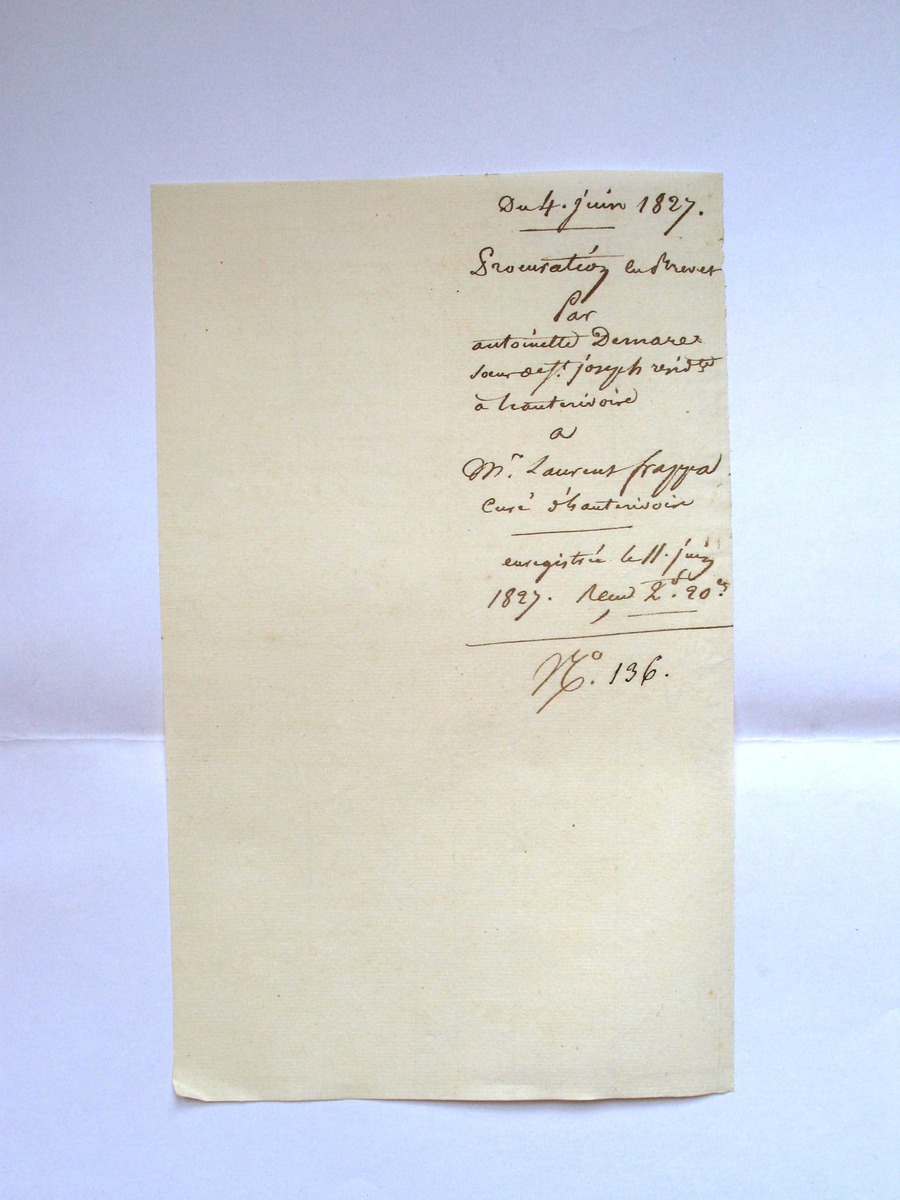 Du 4. juin 1827.
Procuration en Brevet
Par
antoinette Demare
soeur de St. joseph residte
à hauterivoire
a
Mr. Laurent frappa
Curé d'hauterivoire
enregistrée le 11. juin
1827. Recu 2d. 20cs
No. 136.